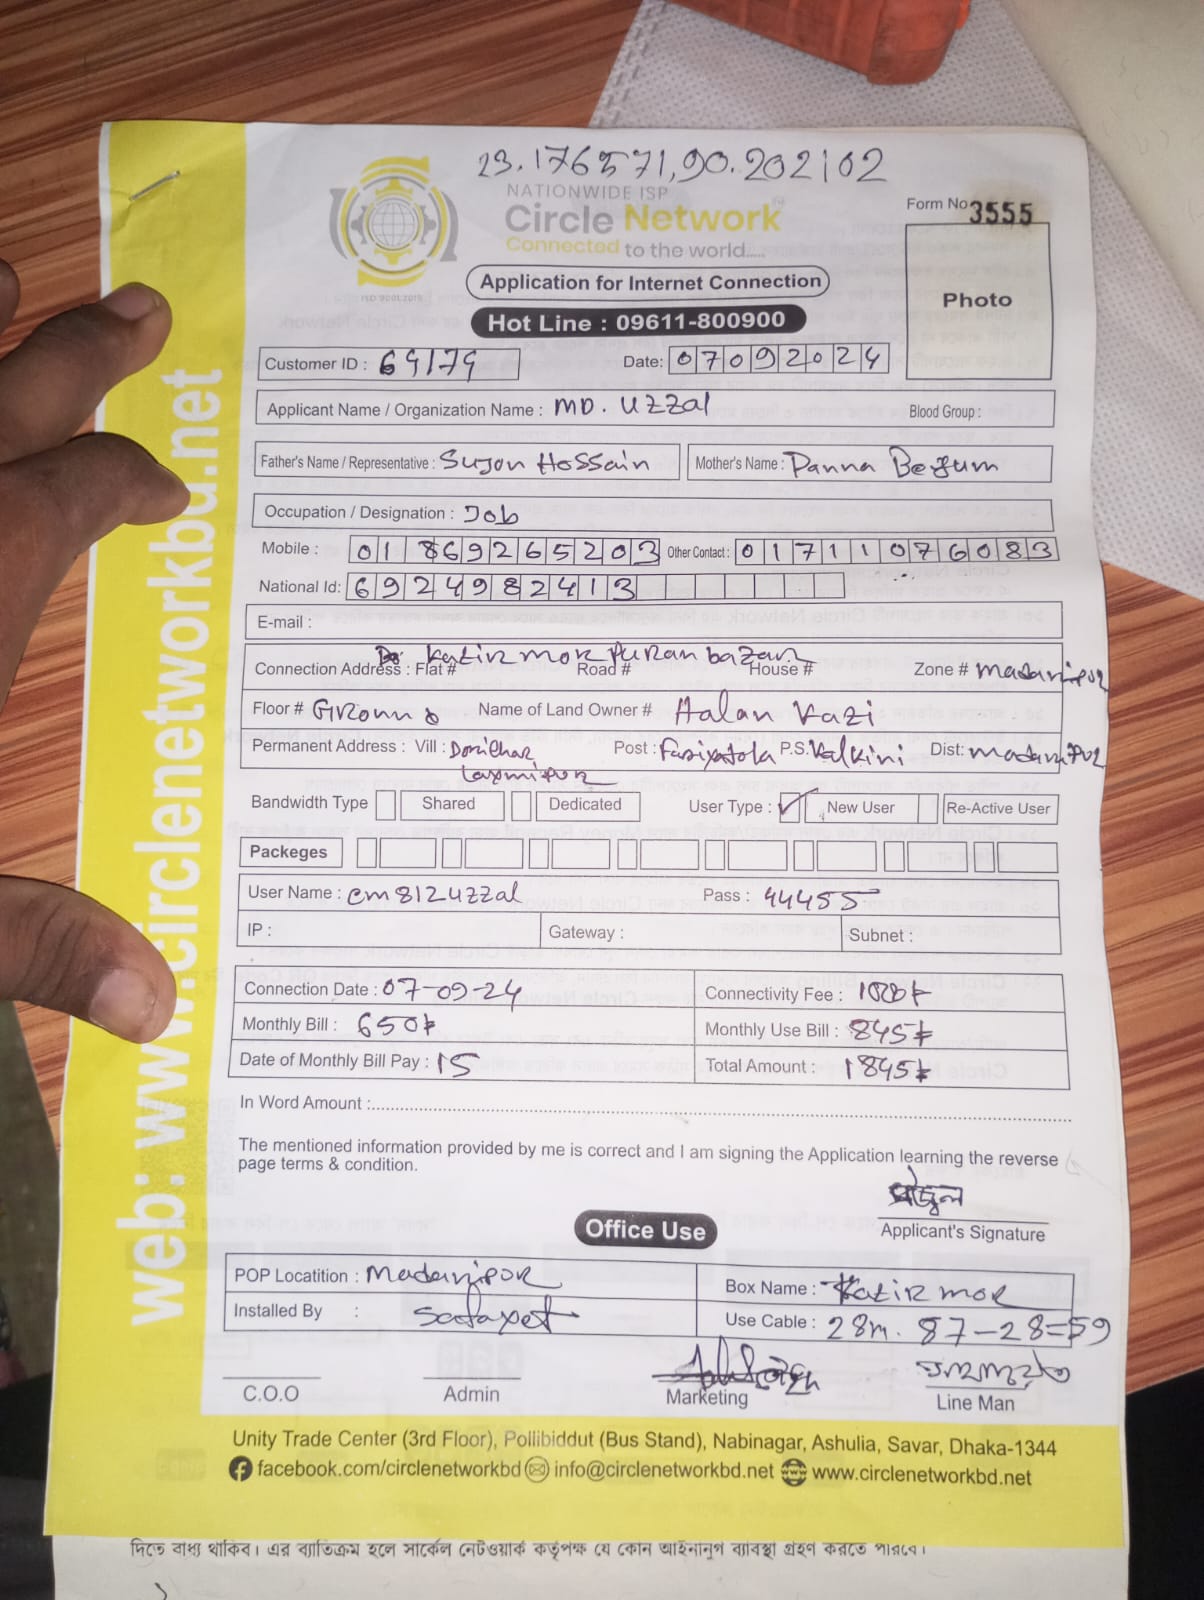 23.176571,90.202102
NATIONWIDE ISP
Circle Network
Connected to the world.....
ISO 9001:2015
Form No 3555
Photo
Application for Internet Connection
Hot Line : 09611-800900
Customer ID : 69179 Date: 07092024
Applicant Name / Organization Name : MD. Uzzal Blood Group :
Father's Name / Representative : Sujon Hossain Mother's Name : Panna Begum
Occupation / Designation : Job
Mobile : 01869265203 Other Contact : 01711076083
National Id: 6924982413
E-mail :
Katir mor puran bazar
Connection Address : Flat # Road # House # Zone # Madaripur
Floor # Ground Name of Land Owner # Halan Kazi
Permanent Address : Vill : Post : P.S. Kalkini Dist: Madaripur
Laxmipur
Bandwidth Type Shared Dedicated User Type : ✓ New User Re-Active User
Packeges
User Name : cm812uzzal Pass : 44455
IP : Gateway : Subnet :
Connection Date : 07-09-24 Connectivity Fee :
Monthly Bill : 650৳ Monthly Use Bill : 845৳
Date of Monthly Bill Pay : 15 Total Amount : 1845৳
In Word Amount :
The mentioned information provided by me is correct and I am signing the Application learning the reverse
page terms & condition.
Applicant's Signature
Office Use
POP Locatition : Madaripur Box Name : Katir mor
Installed By : Use Cable : 28m. 87-28=59
C.O.O Admin Marketing Line Man
Unity Trade Center (3rd Floor), Pollibiddut (Bus Stand), Nabinagar, Ashulia, Savar, Dhaka-1344
facebook.com/circlenetworkbd info@circlenetworkbd.net www.circlenetworkbd.net
web: www.circlenetworkbd.net
দিতে বাধ্য থাকিব। এর ব্যাতিক্রম হলে সার্কেল নেটওয়ার্ক কর্তৃপক্ষ যে কোন আইনানুগ ব্যাবস্থা গ্রহণ করতে পারবে।